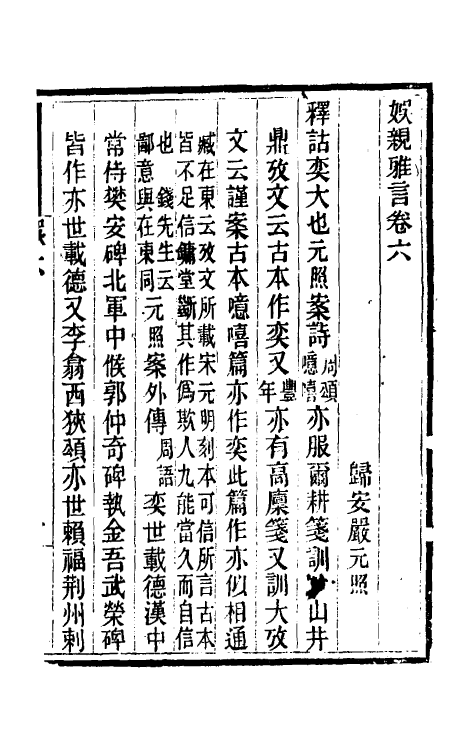 娛親雅言卷六
歸安嚴元照
釋詁奕大也元照案詩周頌噫嘻亦服爾耕箋訓山井
鼎攷文云古本作奕又豐年亦有高廩箋又訓大攷
文云謹案古本噫嘻篇亦作奕此篇作亦似相通
臧在東云攷文所載宋元明刻本可信所言古本
皆不足信鏞堂斷其作僞欺人九能當久而自信
也 錢先生云
鄙意與在東同元照案外傳周語奕世載德漢中
常侍樊安碑北軍中候郭仲奇碑執金吾武榮碑
皆作亦世載德又李翕西狹頌亦世賴福荆州刺